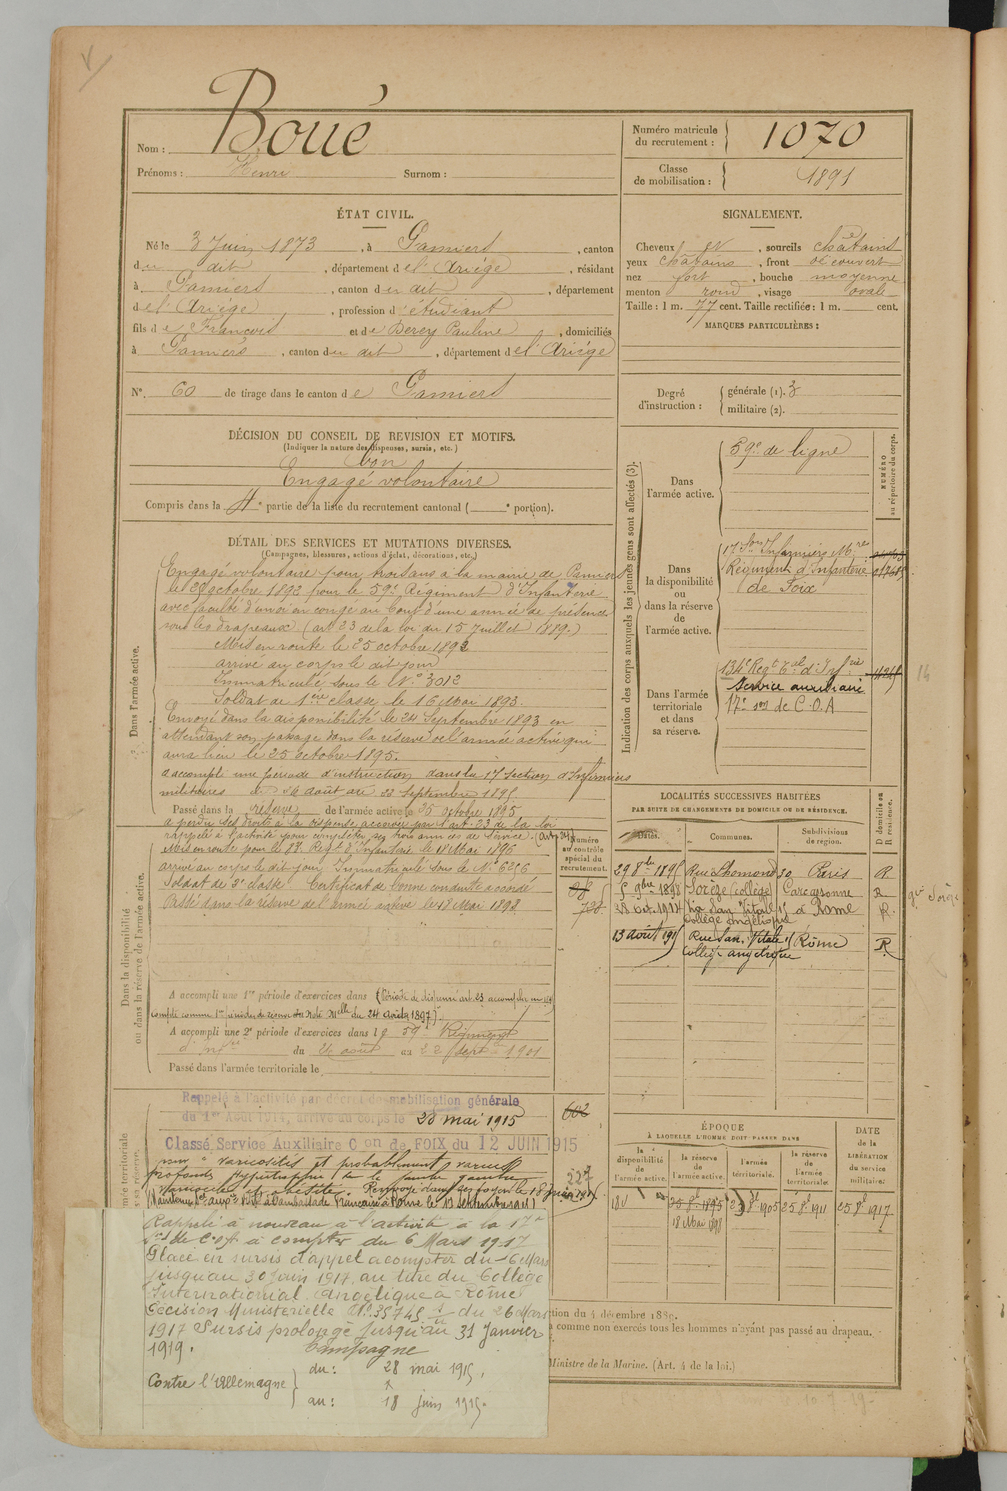 Nom : Boué
Prénoms : Henri Surnom :
Numéro matricule du recrutement : 1070
Classe de mobilisation : 1891
ÉTAT CIVIL.
Né le 3 Juin 1873, à Pamiers, canton
du dit, département de l'Ariège, résidant
à Pamiers, canton du dit, département
de l'Ariège, profession d'étudiant
fils de François et de Berey Pauline, domiciliés
à Pamiers, canton du dit, département de l'Ariège
N° 60 de tirage dans le canton de Pamiers
SIGNALEMENT.
Cheveux et, sourcils châtains
yeux châtains, front découvert
nez fort, bouche moyenne
menton rond, visage oval
Taille : 1 m. 77 cent. Taille rectifiée : 1 m. cent.
MARQUES PARTICULIÈRES :
Degré d'instruction : générale (1). 3
militaire (2).
DÉCISION DU CONSEIL DE REVISION ET MOTIFS.
(Indiquer la nature des dispenses, sursis, etc.)
bon
Engagé volontaire
Compris dans la 4e partie de la liste du recrutement cantonal ( e portion).
DÉTAIL DES SERVICES ET MUTATIONS DIVERSES.
(Campagnes, blessures, actions d'éclat, décorations, etc.)
Dans l'armée active.
Engagé volontaire pour trois ans à la mairie de Pamiers
le octobre 1892 pour le 59e Régiment d'Infanterie
avec faculté d'envoi en congé au bout d'une année de présence
sous les drapeaux (art 23 de la loi du 15 juillet 1889.)
Mis en route le 25 octobre 1892
arrivé au corps le dit jour
Immatriculé sous le N° 3012
Soldat de 1ère classe le 16 Mai 1893.
Envoyé dans la disponibilité le 24 Septembre 1893 en
attendant son passage dans la réserve de l'armée active qui
aura lieu le 25 octobre 1895.
a accompli une période d'instruction dans la 17 Section d'Infirmiers
militaires du 26 août au 22 septembre 1895
Dans la disponibilité ou dans la réserve de l'armée active.
Passé dans la réserve de l'armée active le 25 octobre 1895
a perdu ses droits à la dispense accordée par l'art. 23 de la loi
rappelé à l'activité pour compléter ses trois années de service. (art 24)
Mis en route pour le 83e Regt d'Infanterie le 18 Mai 1896
arrivé au corps le dit jour Immatriculé sous le N° 6256
Soldat de 2e classe Certificat de bonne conduite accordé
Passé dans la réserve de l'armée active le 18 Mai 1898
A accompli une 1re période d'exercices dans (Période de dispensé art. 23 accomplie en 1895
compte comme 1re période de réserve 24 août 1897)
A accompli une 2e période d'exercices dans le 59e Régiment
d'Infrie du 26 août au 22 septe 1901
Passé dans l'armée territoriale le
Rappelé à l'activité par décret de mobilisation générale
du 1er Août 1914, arrivé au corps le 28 mai 1915
Classé Service Auxiliaire Con de FOIX du 12 JUIN 1915
pour varicosités et probablement varices
profondes hypertrophie de la jambe
obésité. Renvoyé dans ses foyers le 18 juin 1915
Rappelé à nouveau à l'activité à la 17e
son de C.O.A. à compter du 6 Mars 1917
Placé en sursis d'appel à compter du 6 Mars
jusqu'au 30 juin 1917 au titre du Collège
International Angélique à Rome
Décision Ministerielle N° 35745 du 26 Mars
1917 Sursis prolongé jusqu'au 31 Janvier
1919.
Campagne
Contre l'Allemagne du : 28 mai 1915,
au : 18 juin 1915.
Indication des corps auxquels les jeunes gens sont affectés (3).
NUMÉRO au répertoire du corps.
Dans l'armée active. 59e de ligne
Dans la disponibilité ou dans la réserve de l'armée active.
17 Son Infirmiers Mres
Régiment d'Infanterie
de Foix
Dans l'armée territoriale et dans sa réserve.
134e Regt Tal d'Infrie
Service auxiliaire
17e son de C.O.A
14
Numéro au contrôle spécial du recrutement.
602
227
LOCALITÉS SUCCESSIVES HABITÉES
PAR SUITE DE CHANGEMENTS DE DOMICILE OU DE RÉSIDENCE.
Dates. Communes. Subdivisions de région. D domicile ou R résidence.
29 8bre 1895 Rue Lhomond 30 Paris R
5 9bre 1898 Sorèze (collège) Carcassonne R
28 oct. 1914 Via San Vitale 15 à Rome R.
Collège angélique
13 août 1915 Rue San Vitale 15 Rome R
Collège angélique
ÉPOQUE
À LAQUELLE L'HOMME DOIT PASSER DANS
la disponibilité de l'armée active. la réserve de l'armée active. l'armée territoriale. la réserve de l'armée territoriale.
DATE de la LIBÉRATION du service militaire.
25 8e 1895 8e 1905 25 8e 1911 25 8e 1917
18 Mai 1898
tion du 4 décembre 1889.
comme non exercés tous les hommes n'ayant pas passé au drapeau.
Ministre de la Marine. (Art. 4 de la loi.)